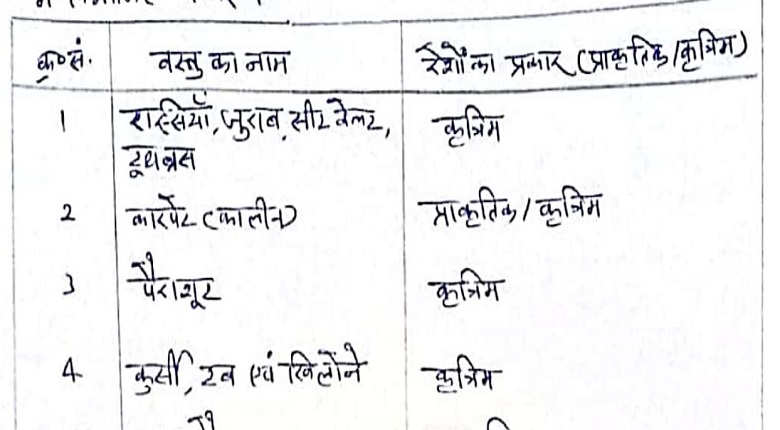 क्र०सं. वस्तु का नाम रेशों का प्रकार (प्राकृतिक/कृत्रिम)
1 रस्सियाँ, जुराब, सीट बेल्ट, कृत्रिम
टूथब्रस
2 कारपेट (कालीन) प्राकृतिक/कृत्रिम
3 पैराशूट कृत्रिम
4 कुर्सी, टब एवं खिलौने कृत्रिम